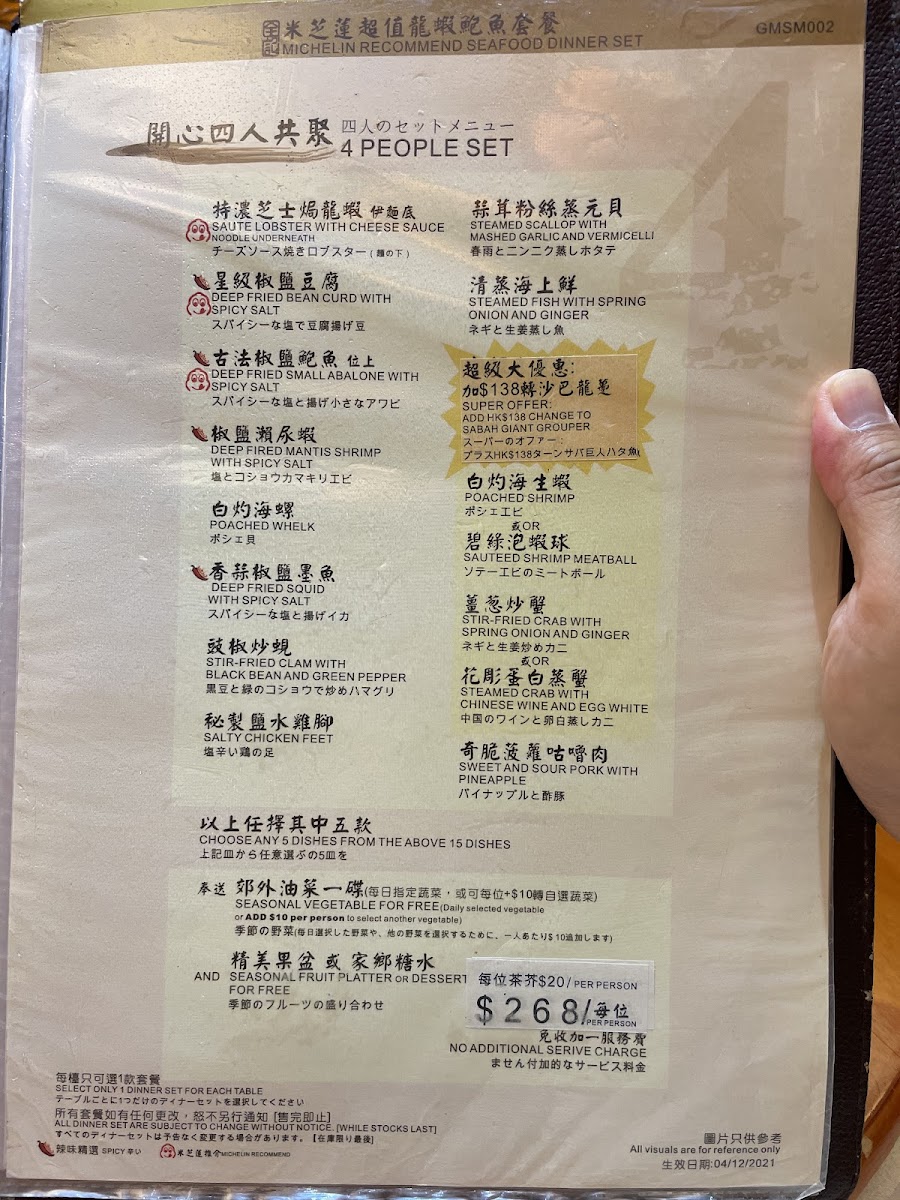 全記 米芝蓮超值龍蝦鮑魚套餐
MICHELIN RECOMMEND SEAFOOD DINNER SET
GMSM002
開心四人共聚
四人のセットメニュー
4 PEOPLE SET
特濃芝士焗龍蝦 伊麵底
SAUTE LOBSTER WITH CHEESE SAUCE
NOODLE UNDERNEATH
チーズソース焼きロブスター (麺の下)
星級椒鹽豆腐
DEEP FRIED BEAN CURD WITH
SPICY SALT
スパイシーな塩で豆腐揚げ豆
古法椒鹽鮑魚 位上
DEEP FRIED SMALL ABALONE WITH
SPICY SALT
スパイシーな塩と揚げ小さなアワビ
椒鹽瀨尿蝦
DEEP FIRED MANTIS SHRIMP
WITH SPICY SALT
塩とコショウカマキリエビ
白灼海螺
POACHED WHELK
ポシェ貝
香蒜椒鹽墨魚
DEEP FRIED SQUID
WITH SPICY SALT
スパイシーな塩と揚げイカ
豉椒炒蜆
STIR-FRIED CLAM WITH
BLACK BEAN AND GREEN PEPPER
黒豆と緑のコショウで炒めハマグリ
秘製鹽水雞腳
SALTY CHICKEN FEET
塩辛い鶏の足
蒜茸粉絲蒸元貝
STEAMED SCALLOP WITH
MASHED GARLIC AND VERMICELLI
春雨とニンニク蒸しホタテ
清蒸海上鮮
STEAMED FISH WITH SPRING
ONION AND GINGER
ネギと生姜蒸し魚
超級大優惠:
加$138轉沙巴龍躉
SUPER OFFER:
ADD HK$138 CHANGE TO
SABAH GIANT GROUPER
スーパーのオファー:
プラスHK$138ターンサバ巨人ハタ魚
白灼海生蝦
POACHED SHRIMP
ポシェエビ
或OR
碧綠泡蝦球
SAUTEED SHRIMP MEATBALL
ソテーエビのミートボール
薑葱炒蟹
STIR-FRIED CRAB WITH
SPRING ONION AND GINGER
ネギと生姜炒めカニ
或OR
花彫蛋白蒸蟹
STEAMED CRAB WITH
CHINESE WINE AND EGG WHITE
中国のワインと卵白蒸しカニ
奇脆菠蘿咕嚕肉
SWEET AND SOUR PORK WITH
PINEAPPLE
パイナップルと酢豚
以上任擇其中五款
CHOOSE ANY 5 DISHES FROM THE ABOVE 15 DISHES
上記皿から任意選ぶの5皿を
奉送 郊外油菜一碟(每日指定蔬菜，或可每位+$10轉自選蔬菜)
SEASONAL VEGETABLE FOR FREE (Daily selected vegetable
or ADD $10 per person to select another vegetable)
季節の野菜(毎日選択した野菜や、他の野菜を選択するために、一人あたり$10追加します)
精美果盆 或 家鄉糖水
AND SEASONAL FRUIT PLATTER OR DESSERT
FOR FREE
季節のフルーツの盛り合わせ
每位茶芥$20/PER PERSON
$268/每位
PER PERSON
免收加一服務費
NO ADDITIONAL SERIVE CHARGE
ません付加的なサービス料金
每檯只可選1款套餐
SELECT ONLY 1 DINNER SET FOR EACH TABLE
テーブルごとに1つだけのディナーセットを選択してください
所有套餐如有任何更改，怒不另行通知 [售完即止]
ALL DINNER SET ARE SUBJECT TO CHANGE WITHOUT NOTICE. [WHILE STOCKS LAST]
すべてのディナーセットは予告なく変更する場合があります。【在庫限り最後】
辣味精選 SPICY 辛い 米芝蓮推介 MICHELIN RECOMMEND
圖片只供參考
All visuals are for reference only
生效日期:04/12/2021